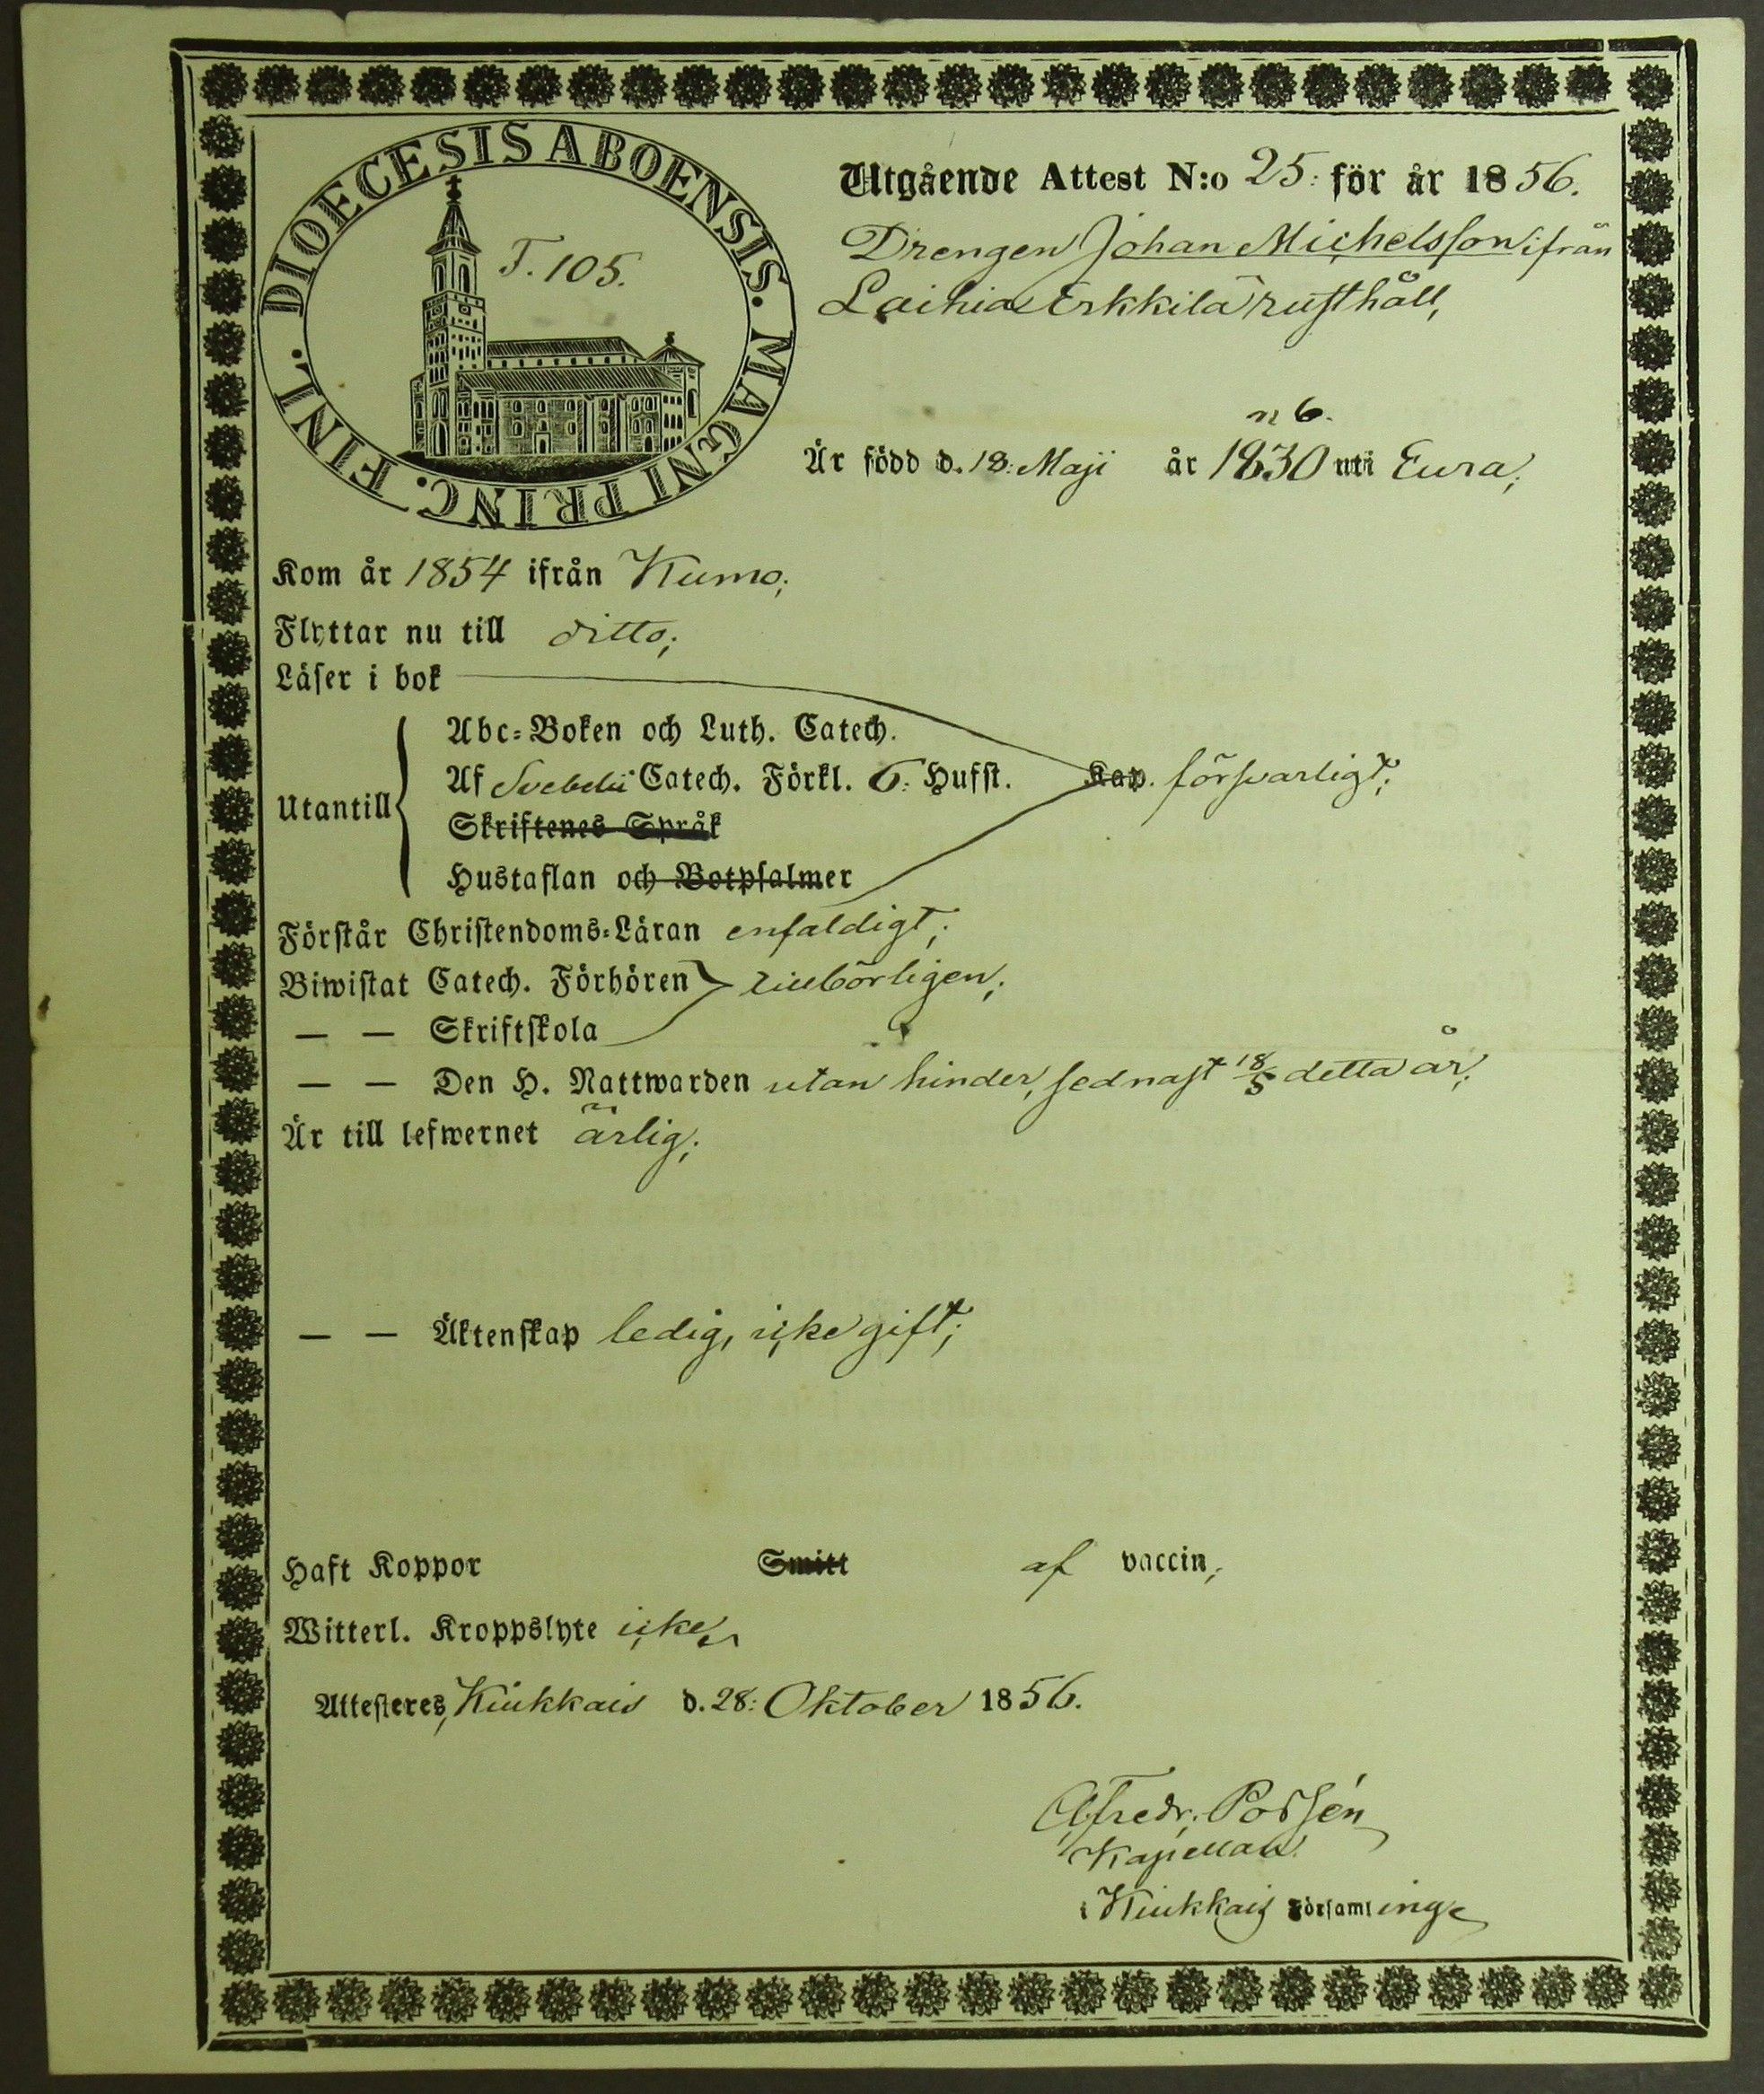 DIOECESIS ABOENSIS. MAGNI PRINC. FINL.
T. 105.
Utgående Attest N:o 25: för år 1856.
Drengen Johan Michelsson ifrån
Laihia Erkkilä rusthåll,
n 6.
Är född d. 18: Maji år 1830 uti Eura;
Kom år 1854 ifrån Kumo;
Flyttar nu till ditto;
Läser i bok
Abc-Boken och Luth. Catech.
Utantill Af Svebelii Catech. Förkl. 6: Hufst. Kap. försvarligt;
Skriftenes Språk
Hustaflan och Botpsalmer
Förstår Christendoms-Läran enfaldigt;
Biwistat Catech. Förhören tillbörligen;
— — Skriftskola
— — Den H. Nattwarden utan hinder, sednast 18/5 detta år;
Är till lefwernet ärlig;
— — Äktenskap ledig, icke gift;
Haft Koppor Smitt af vaccin;
Witterl. Kroppslyte icke
Attesteres, Kiukkais d. 28: Oktober 1856.
Fredr. Possén
Kapellan
i Kiukkais Församlinge